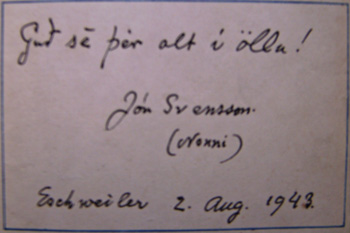 Guð sé þér alt í öllu!
Jón Svensson.
(Nonni)
Eschweiler 2. Aug. 1943.